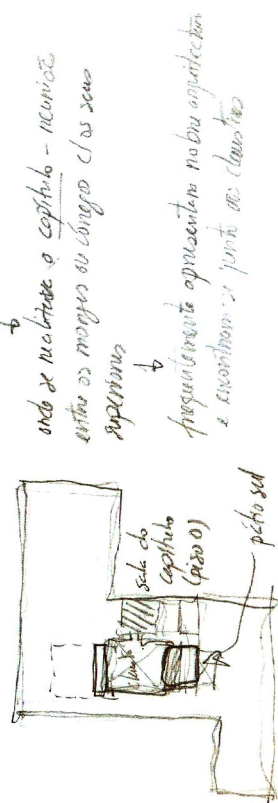 onde se realizava o capítulo - reunião
entre os monges ou cónegos c/ os seus
superiores
frequentemente apresentam nobre arquitectura
e encontram-se junto aos claustros
sala do
capítulo
(piso 0)
claustro
pátio sul